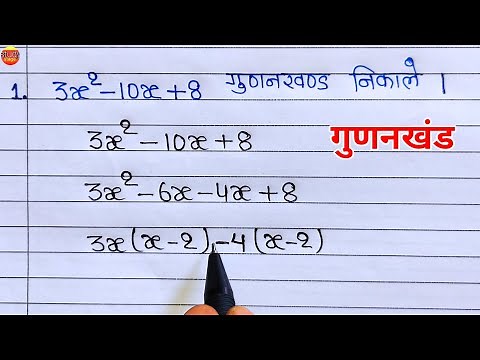 1. 3x²-10x+8 गुणनखण्ड निकाले ।
3x²-10x+8
गुणनखंड
3x²-6x-4x+8
3x(x-2)-4(x-2)